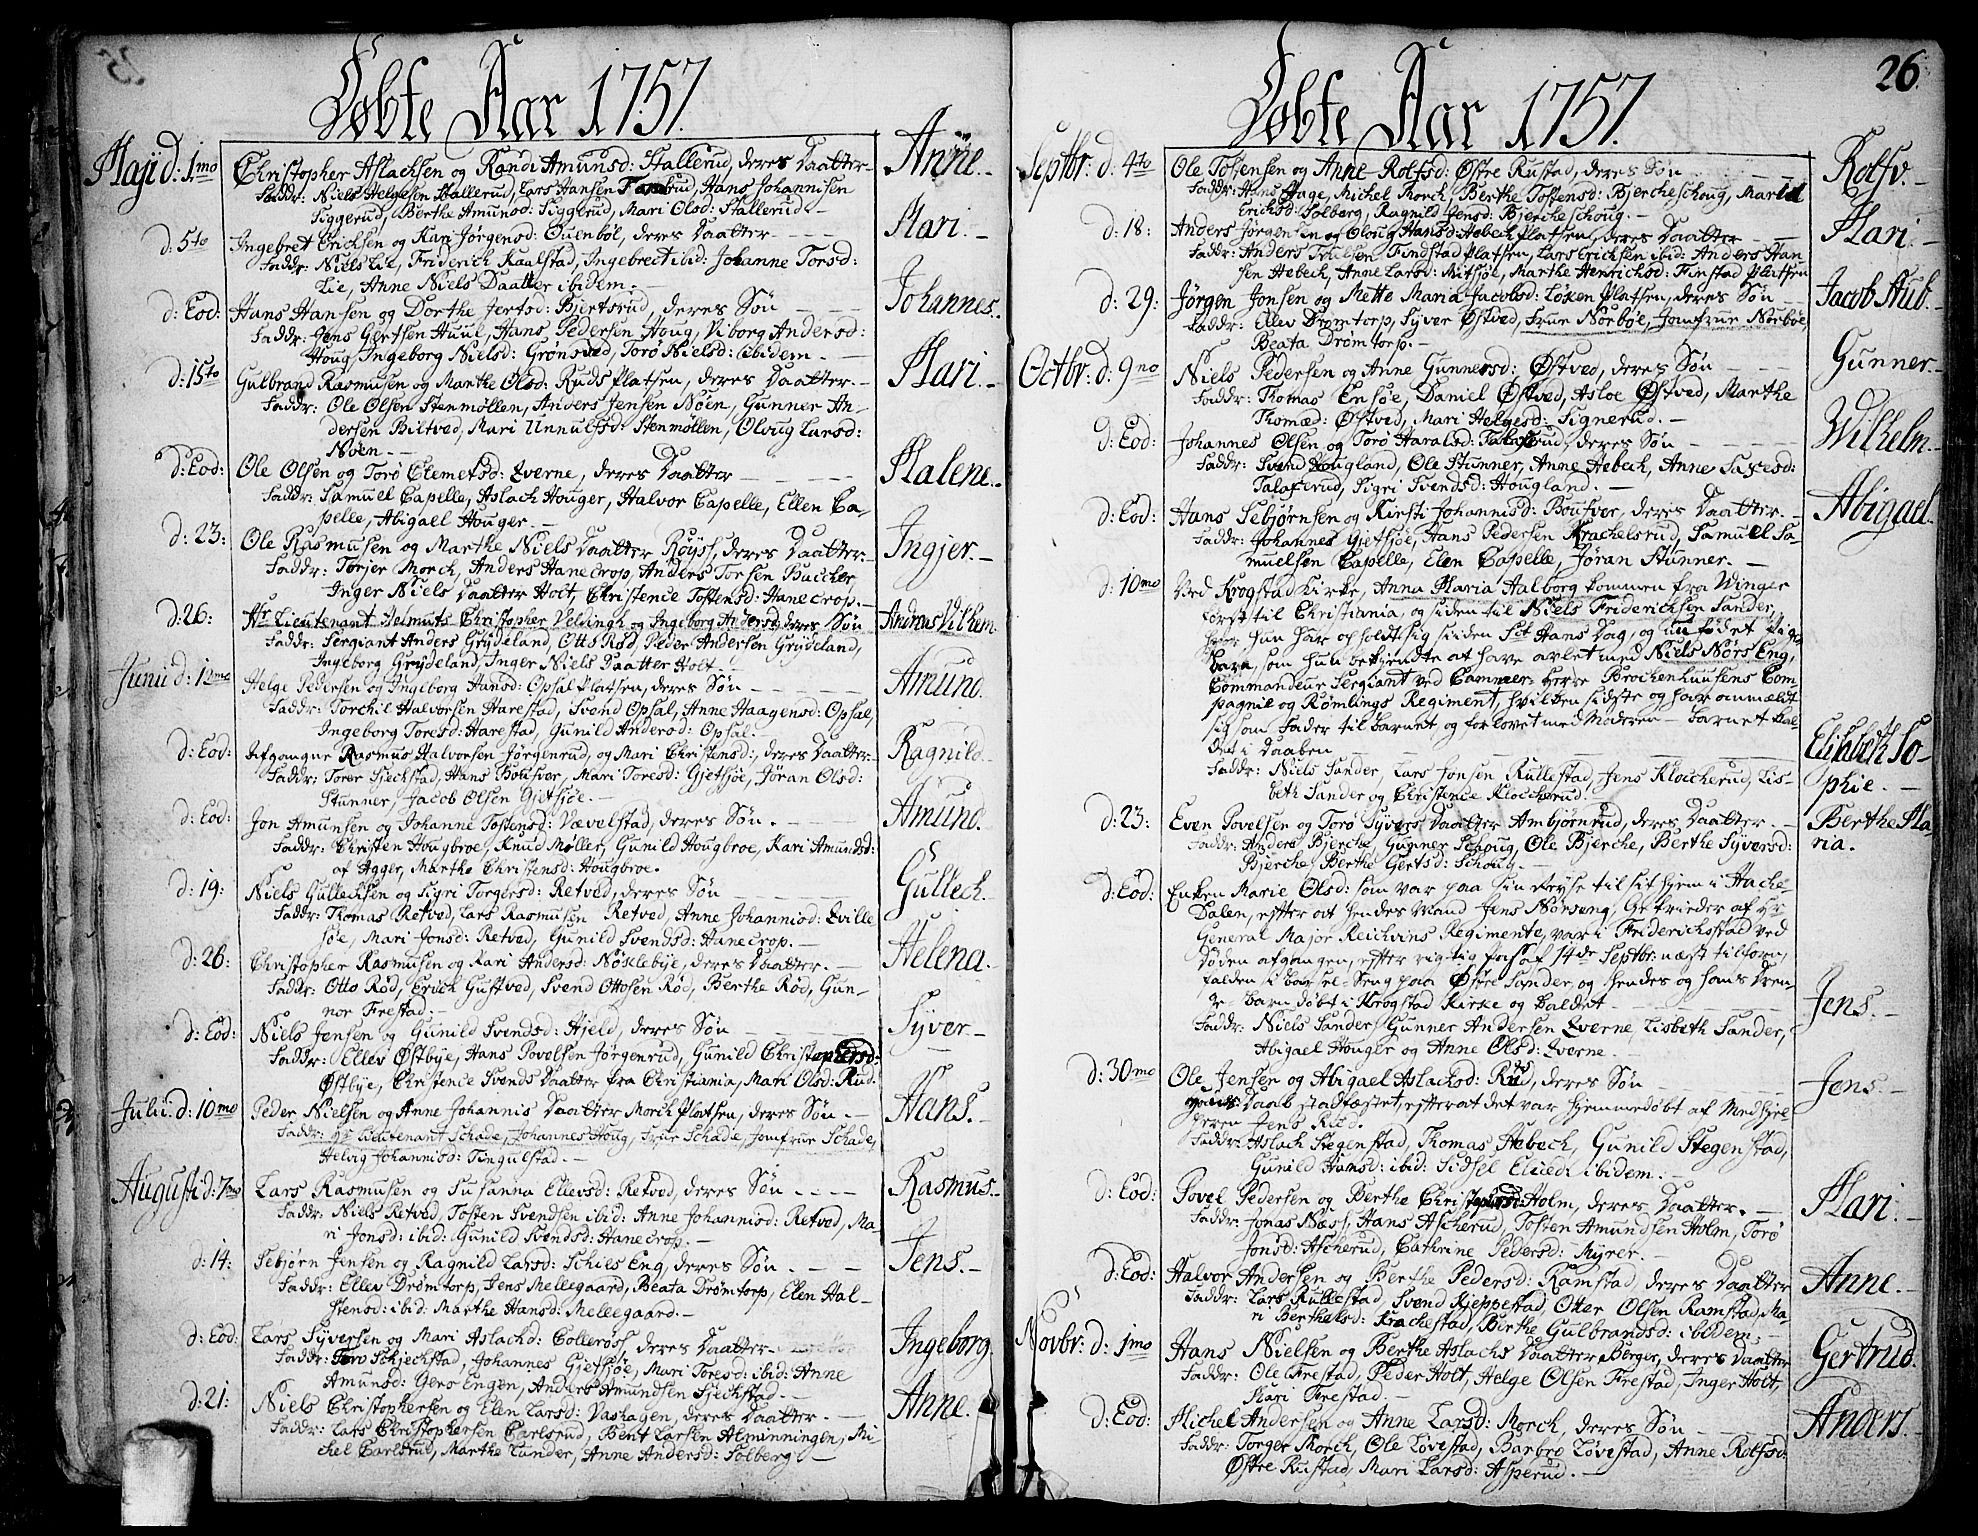 Døbte Aar 1757.
Maji d: 1mo Christopher Aslachsen og Randi Amunsd: Stallerud, deres Daatter Anne.
Faddr: Niels Helgesen Stallerud, Lars Hansen Hans Johannisen
Siggerud, Berthe Amunsd: Siggerud, Mari Olsd: Stallerud.
d: 5to Ingebret Erichsen og Kari Jørgensd: Ouenbøl, deres Daatter Mari.
Faddr: Niels Lie, Friderich Kaalstad, Ingebrect ibid: Johanne Torsd:
Lie, Anne Niels Daatter ibidem.
d: Eod: Hans Hansen og Dorthe Jertsd: Bjertsrud, deres Søn Johannes.
Faddr: Jens Gertsen Huul, Hans Pedersen Houg, Viborg Andersd:
Houg, Ingeborg Nielsd: Grønsved, Torø Nielsd: ibidem.
d: 15to Gulbrand Rasmusen og Marthe Olsd: Ruds Platsen, deres Daatter Mari.
Faddr: Ole Olsen Stenmøllen, Anvers Jensen Nøen, Gunner An-
dersen Biltved, Mari Unnulfsd: Stenmøllen, Oloug Larsd:
Nøen.
d: Eod: Ole Olsen og Torø Clemetsd: Everne, deres Daatter Malene.
Faddr: Samuel Capelle, Aslach Houger, Halvor Capelle, Ellen Ca-
pelle, Abigael Houger.
d: 23: Ole Rasmusen og Marthe Niels Daatter Røyss, deres Daatter Ingjer.
Faddr: Torjer Morch, Anders Hanecrop, Anders Torsen Buccher
Inger Niels Daatter Holt, Christence Tostensd: Hanecrop.
d: 26: Hr Lieutenant Helmuts Christopher Veldingk og Ingeborg Andersd, deres Søn Andreas Vilhem.
Faddr: Sergiant Anders Grydeland, Otto Rød, Peder Andersen Grydeland,
Ingeborg Grydeland, Inger Niels Daatter Holt.
Junii d: 12mo Helge Pedersen og Ingeborg Hansd: Opsal Platsen, deres Søn Amund.
Faddr: Torchil Halvorsen Harestad, Svend Opsal, Anne Haagensd: Opsal,
Ingeborg Toresd: Harestad, Gunild Andersd: Opsal.
d: Eod: Afgangne Rasmus Halvorsen Jørgenrud, og Mari Christensd:, deres Daatter Ragnild.
Faddr: Torer Sjechstad, Hans Boufver, Mari Toresd: Gjetsjøe, Jøran Olsd:
Stunner, Jacob Olsen Gjetsjøe.
d: Eod: Jon Amunsen og Johanne Tostensd: Vævelstad, deres Søn. Amund.
Faddr: Christen Hougbroe, Knud Møller, Gunild Hougbroe, Kari Amundsd:
af Agger, Marthe Christensd: Hougbroe.
d: 19: Niels Gullechsen og Sigri Torgersd: Retved, deres Søn Gullech.
Faddr: Thomas Retved, Lars Rasmusen Retved, Anne Johannisd: Eville
søe, Mari Jonsd: Retved, Gunild Svendsd: Hanecrop.
d: 26: Christopher Rasmusen og Kari Andersd: Nøsslebye, deres Daatter. Helena.
Faddr: Otto Rød, Erich Gustved, Svend Ottosen Rød, Berthe Rød, Gun-
nor Frestad.
d: Eod: Niels Jensen og Gunild Svendsd: Hjeld, deres Søn Syver.
Faddr: Ellev Østbye, Hans Povelsen Jørgenrud, Gunild Christophersd:
Østbye, Christence Svends Daatter fra Christiania, Mari Olsd: Rud.
Julii d: 10mo Peder Nielsen og Anne Johannis Daatter Morch Platsen, deres Søn. Hans.
Faddr: Hr Lieutenant Schade, Johannes Houg, Frue Schade, Jomfrue Schade,
Helvig Johannisd: Tingulstad.
Augusti d: 7mo Lars Rasmusen og Susanna Ellevsd: Retved, deres Søn Rasmus.
Faddr: Niels Retved, Tosten Svendsen ibid: Anne Johannisd: Retved, Ma-
ri Jonsd: ibid: Gunild Svendsd: Hanecrop.
d: 14: Sebjørn Jensen og Ragnild Larsd: Schies Eng, deres Søn. Jens.
Faddr: Ellev Drømtorp, Jens Mellegaard, Beata Drømtorp, Elen Hal-
stensd: ibid: Marthe Hansd: Mellegaard.
d: Eod: Lars Syversen og Mari Aslachd: Collerøss, deres Daatter Ingeborg.
Faddr: Torø Schjechstad, Johannes Gjetsjøe, Mari Toresd: ibid: Anne
Amunsd: Gers Engen, Anders Amundsen Sjechstad.
d: 21: Niels Christophersen og Elen Larsd: Vashagen, deres Daatter. Anne.
Faddr: Lars Christophersen Carlsrud, Bent Larsen Alminningen, Mi-
chel Carlsrud, Marthe Lunder, Anne Andersd: Solberg.
26.
Døbte Aar 1757.
Septbr: d: 4to Ole Tostensen og Anne Rolfsd: Østre Rustad, deres Søn Rolfv.
Faddr: Hans Hage, Michel Morch, Berthe Tostensd: Bjercheschoug, Mari
Erichsd: Solberg, Ragnild Jensd: Bjercheschoug.
d: 18: Anders Jørgensen og Oloug Hansd: Hebech Platsen, deres Daatter Mari.
Faddr: Anders Truelsen Findstad Platsen, Lars Erichsen ibid: Anders Han-
sen Hebech, Anne Larsd: Mitsjøe, Marthe Henrichsd: Finstad Platsen
d: 29: Jørgen Jonsen og Mette Maria Jacobsd: Løken Platsen, deres Søn Jacob Stub.
Faddr: Ellev Drømtorp, Syver Østved, Frue Norbøe, Jomfrue Norbøe,
Beata Drømtorp.
Octbr: d: 9no Niels Pedersen og Anne Gunnersd: Østved, deres Søn Gunner.
Faddr: Thomas Ensøe, Daniel Østved, Asloe Østved, Marthe
Thomæd: Østved, Mari Helgesd: Signerud.
d: Eod: Johannes Olsen og Torø Haralsd: Talasterud, deres Søn Wilhelm.
Faddr: Svend Hougland, Ole Stunner, Anne Hebech, Anne Saxesd:
Talasterud, Sigri Svendsd: Hougland.
d: Eod: Hans Sebjørnsen og Kirsti Johannisd: Boufver, deres Daatter. Abigael.
Faddr: Johannes Gjetsjøe, Hans Pedersen Krachelsrud, Samuel Sa-
muelsen Capelle, Elen Capelle, Jøran Stunner.
d: 10mo Ved Krogstad Kirke, Anna Maria Aalborg kommen fra Winger
først til Christiania, og siden til Niels Friderichsen Sander,
hvor hun har opholdt sig siden Sct Hans Dag, og nu fødet Pige
barn, som hun bekjendte at have avlet med Niels Nørs Eng,
Commandeur Sergiant ved Cammer-herre Brockenhuusens Com-
pagnie og Rømlings Regiment, hvilken sidste og har anmældt
sig som Fader til barnet og forlovet med Moderen barnet kal-
det i Daaben Elisabeth So-
phie.
Faddr: Niels Sander, Lars Jonsen Rullestad, Jens Kloccherud, Lis-
beth Sander og Christence Kloccherud.
d: 23: Even Povelsen og Torø Syvers Daatter Ambjørnrud, deres Daatter. Berthe Ma-
ria.
Faddr: Anders Bjerche, Gunner Schoug, Ole Bjerche, Berthe Syversd:
Bjerche, Berthe Gertsd: Schoug.
d: Eod: Enken Marie Olsd: som var paa sin Reyse til sit hjem i Hache-
Dalen, effter at hendes Mand Jens Nørseng, Gefrieder af Hr
General Major Reichvins Regimente, var i Friderichstad ved
Døden afgangen, effter rigtig Pass af 14de Septbr: næst tilforn,
falden i barsel-Seng paa Østre Sander, og hendes og hans Dren-
ge-barn døbt i Krogstad Kirke og kaldet Jens.
Faddr: Niels Sander, Gunner Andersen Everne, Lisbeth Sander,
Abigael Houger og Anne Olsd: Everne.
d: 30mo Ole Jensen og Abigael Aslachsd: Rud, deres Søn Jens
Daab stadfæstet, effter at det var hjemmedøbt af Medhjel-
peren Jens Ruud.
Faddr: Aslach Stegenstad, Thomas Hebech, Gunild Stegenstad,
Gunild Hansd: ibid: Sidsel ibidem.
d: Eod: Povel Pedersen og Berthe Christophersd: Holm, deres Daatter. Mari.
Faddr: Jonas Næss, Hans Ascherud, Tosten Amundsen Holm, Torø
Jonsd: Ascherud, Cathrine Pedersd: Myrer.
d: Eod: Halvor Andersen og Berthe Pedersd: Ramstad, deres Daatter Anne.
Faddr: Lars Rullestad, Svend Kjeppestad, Otter Olsen Ramstad, Ma-
ri Berthelsd: Krachestad, Berthe Gulbrandsd: ibidem.
Novbr: d: 1mo Hans Nielsen og Berthe Aslachs Daatter Berger, deres Daatter Gertrud.
Faddr: Ole Frestad, Peder Holt, Helge Olsen Frestad, Inger Holt,
Mari Frestad.
d: Eod: Michel Andersen og Anne Larsd: Morch, deres Søn Anders.
Faddr: Torger Morch, Ole Løvestad, Barbro Løvestad, Anne Rolfsd:
Østre Rustad, Mari Larsd: Asperud.